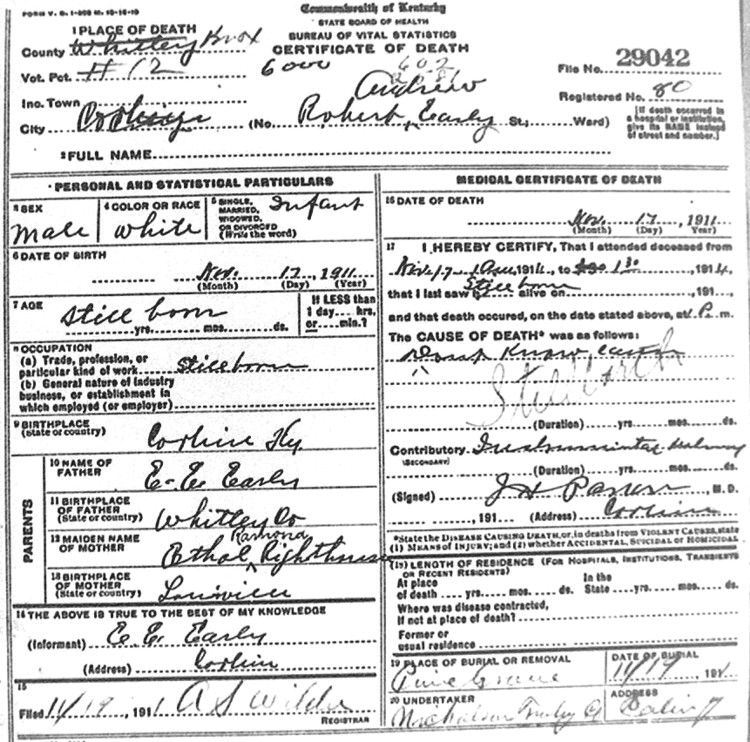 FORM V. S. 1-
Commonwealth of Kentucky
STATE BOARD OF HEALTH
BUREAU OF VITAL STATISTICS
CERTIFICATE OF DEATH
1 PLACE OF DEATH
County Whitley Knox
Vot. Pct. # 12
6000
File No. 29042
Inc. Town
Andrew
Registered No. 80
City
(No. Robert Early St., Ward)
[If death occurred in a hospital or institution, give its NAME instead of street and number.]
2 FULL NAME
PERSONAL AND STATISTICAL PARTICULARS
3 SEX
Male
4 COLOR OR RACE
White
5 SINGLE, MARRIED, WIDOWED, OR DIVORCED (Write the word)
Infant
6 DATE OF BIRTH
Nov. 17, 1911
(Month) (Day) (Year)
7 AGE
Still born
yrs. mos. ds.
If LESS than 1 day hrs. or min.?
8 OCCUPATION
(a) Trade, profession, or particular kind of work Stillborn
(b) General nature of industry business, or establishment in which employed (or employer)
9 BIRTHPLACE
(State or country)
Corbin Ky
PARENTS
10 NAME OF FATHER
E. E. Early
11 BIRTHPLACE OF FATHER
(State or country)
Whitley Co
12 MAIDEN NAME OF MOTHER
Ramona
Ethel
13 BIRTHPLACE OF MOTHER
(State or country)
Louisville
14 THE ABOVE IS TRUE TO THE BEST OF MY KNOWLEDGE
(Informant) E. E. Early
(Address) Corbin
15
Filed 11/19, 1911 A S Wilder
REGISTRAR
MEDICAL CERTIFICATE OF DEATH
16 DATE OF DEATH
Nov. 17, 1911
(Month) (Day) (Year)
17 I HEREBY CERTIFY, That I attended deceased from
Nov 17 1911, to 1 30 1911,
that I last saw h alive on Still born, 191,
and that death occured, on the date stated above, at P. m.
The CAUSE OF DEATH* was as follows:
Dont Know cause
Stillbirth
(Duration) yrs. mos. ds.
Contributory Instrumental delivery
(SECONDARY)
(Duration) yrs. mos. ds.
(Signed) J H Parker, M.D.
, 191 (Address) Corbin
*State the DISEASE CAUSING DEATH, or, in deaths from VIOLENT CAUSES, state
(1) MEANS OF INJURY; and (2) whether ACCIDENTAL, SUICIDAL or HOMICIDAL
(18) LENGTH OF RESIDENCE (FOR HOSPITALS, INSTITUTIONS, TRANSIENTS OR RECENT RESIDENTS)
At place of death yrs. mos. ds.
In the State yrs. mos. ds.
Where was disease contracted, if not at place of death?
Former or usual residence
19 PLACE OF BURIAL OR REMOVAL
Pine Grove
DATE OF BURIAL
11/19 191
20 UNDERTAKER
ADDRESS